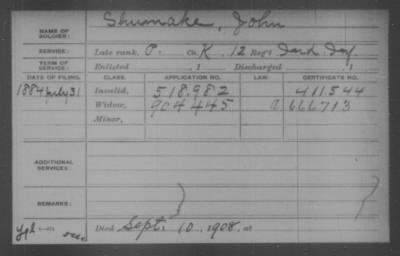 NAME OF SOLDIER: Shumake, John
SERVICE: Late rank, P. Co. K, 12 Reg't
TERM OF SERVICE: Enlisted , 1 Discharged , 1
DATE OF FILING. CLASS. APPLICATION NO. LAW. CERTIFICATE NO.
1884 July 31 Invalid, 518.982 411.544
Widow, 904.445 666713
Minor,
ADDITIONAL SERVICES:
REMARKS:
Died Sept. 10, 1908, at